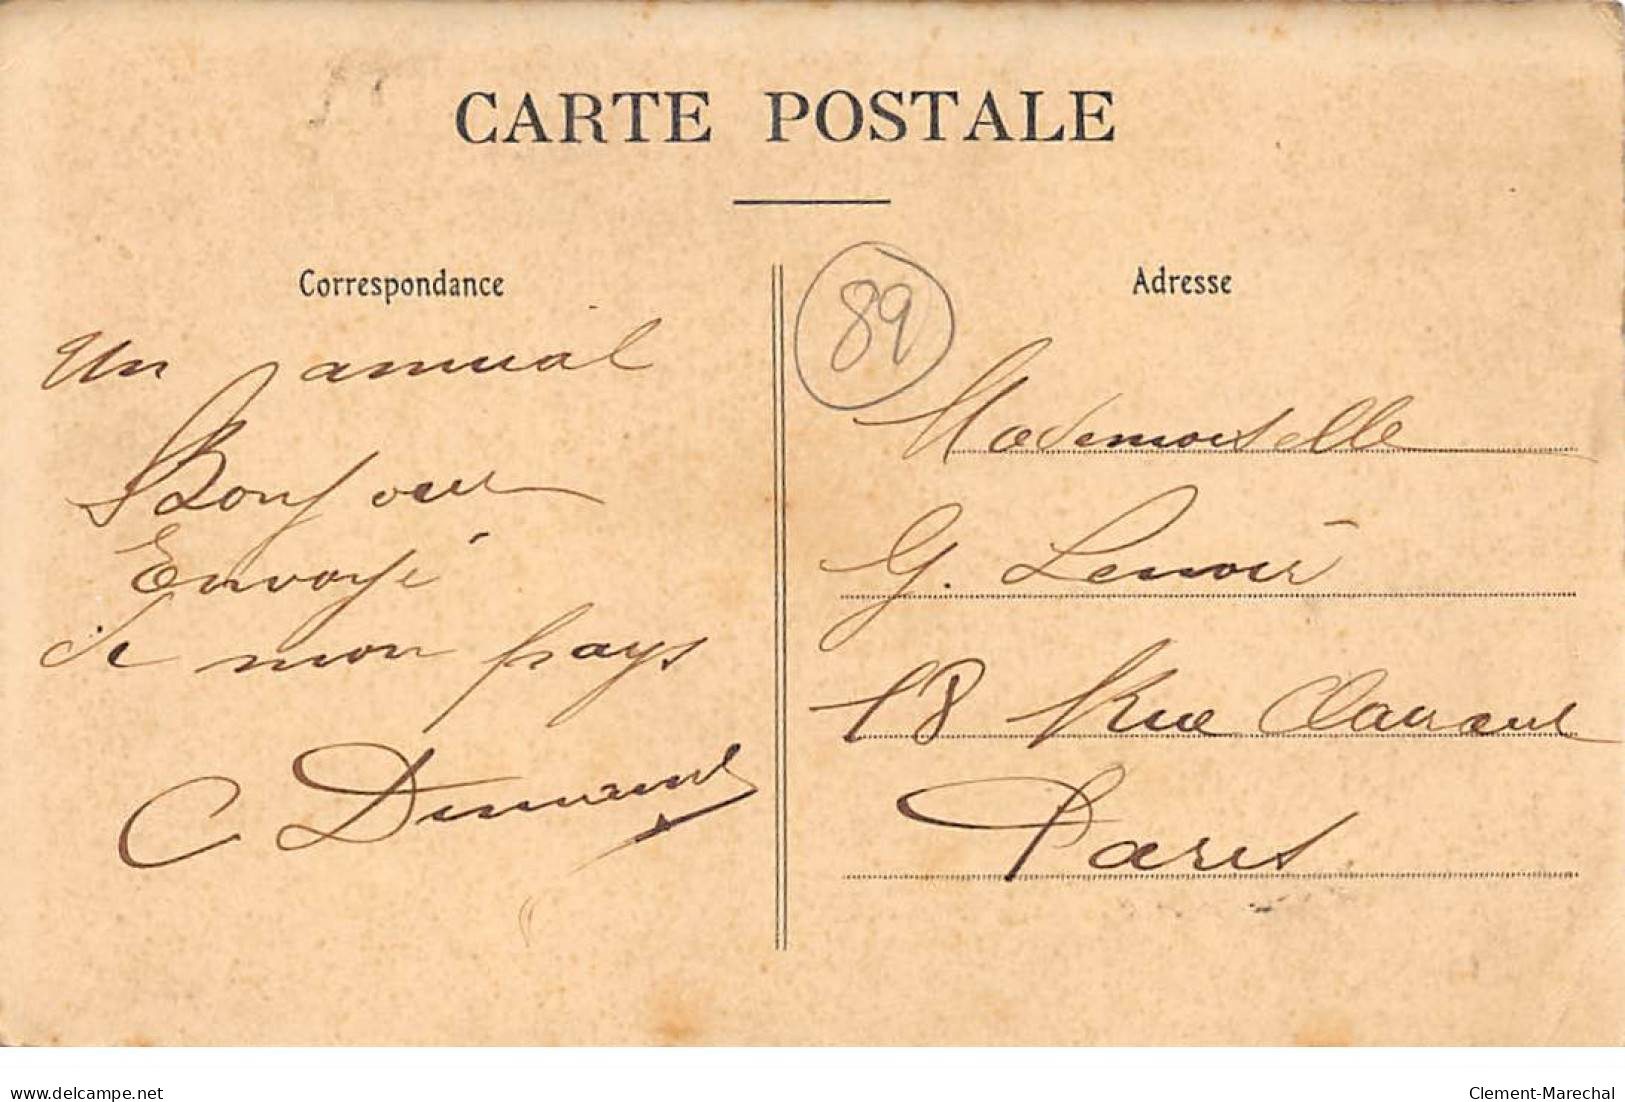 CARTE POSTALE
Correspondance
Un amical
Bonjour
Envoyé
de mon pays
C
89
Adresse
Mademoiselle
G. Lenoir
18 Rue
Paris
delcampe.net
Clement-Marechal